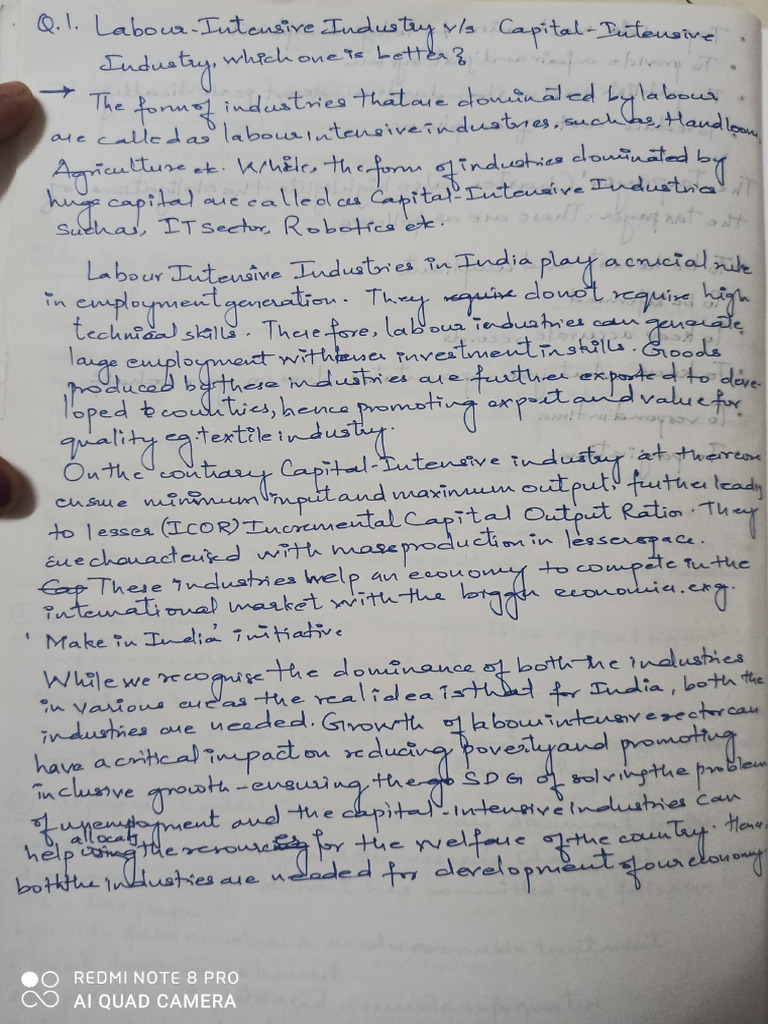 Q.1. Labour-Intensive Industry v/s Capital-Intensive
Industry, which one is better?
→ The form of industries that are dominated by labour
are called as labour intensive industries, such as, Handloom,
Agriculture etc. While, the form of industries dominated by
huge capital are called as Capital-Intensive Industries
Such as, IT sector, Robotics etc.
Labour Intensive Industries in India play a crucial role
in employment generation. They require do not require high
technical skills. Therefore, labour industries can generate
large employment with lesser investment in skills. Goods
produced by these industries are further exported to deve-
loped countries, hence promoting export and value for
quality eg. textile industry.
On the contrary Capital-Intensive industry at their core
ensure minimum input and maximum output, further leads
to lesser (ICOR) Incremental Capital Output Ratio. They
are characterised with mass production in lesser space.
Cap These industries help an economy to compete in the
international market with the bigger economies. e.g.
'Make in India' initiative
While we recognise the dominance of both the industries
in various areas the real idea is that for India, both the
industries are needed. Growth of labour intensive sector can
have a critical impact on reducing poverty and promoting
inclusive growth - ensuring the go SDG of solving the problem
of unemployment and the capital-intensive industries can
help allocate the resources for the welfare of the country. Hence,
both the industries are needed for development of our economy.
REDMI NOTE 8 PRO
AI QUAD CAMERA